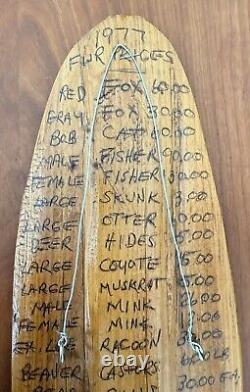 1977
FUR PRICES
RED FOX 60.00
GRAY FOX 30.00
BOB CAT 60.00
MALE FISHER 90.00
FEMALE FISHER 130.00
LARGE SKUNK 3.00
LARGE OTTER 50.00
DEER HIDES 5.00
LARGE COYOTE 5.00
LARGE MUSKRAT 5.00
MALE MINK 26.00
FEMALE MINK
EX. LGE RACOON 30.00
BEAVER CASTORS LB
30.00 EA.